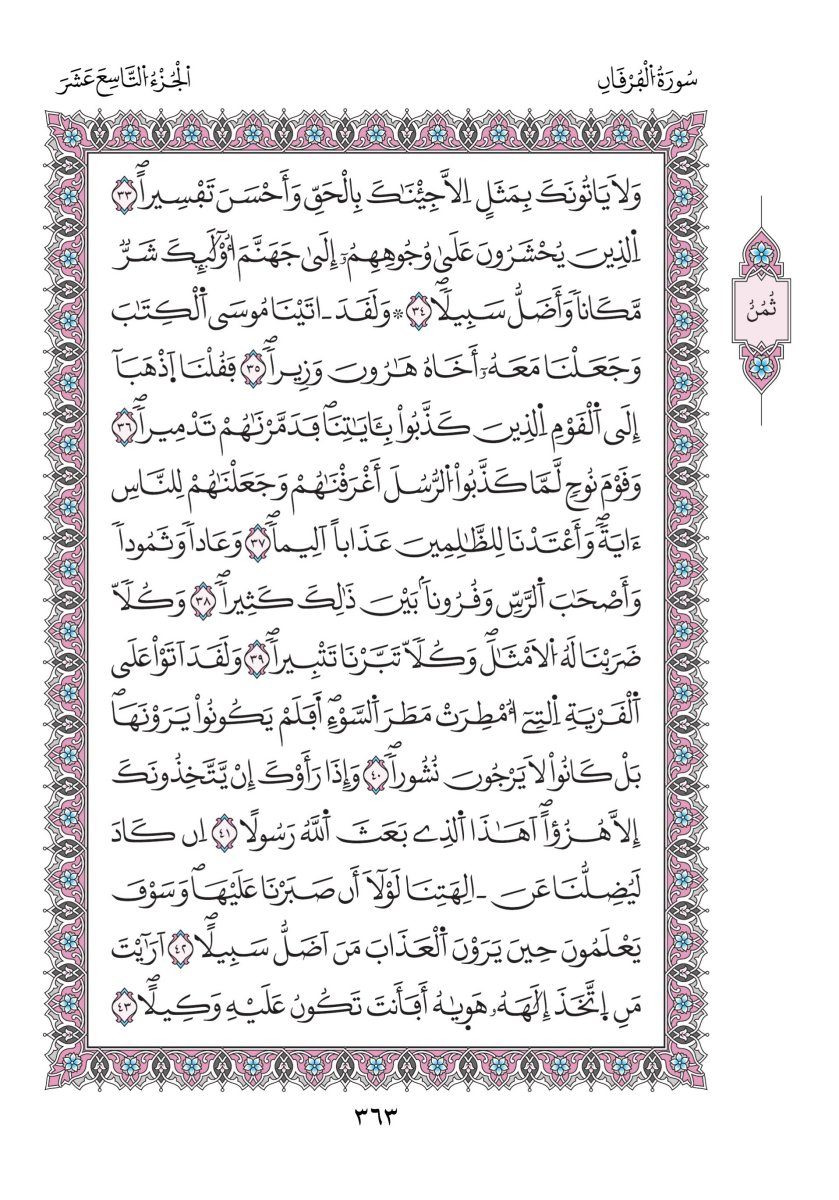 سُورَةُ اُ۬لْفُرْقَانِ
اَ۬لْجُزْءُ اُ۬لتَّاسِعَ عَشَرَ
وَلَا يَاتُونَكَ بِمَثَلٍ اِلَّا جِئْنَٰكَ بِالْحَقِّ وَأَحْسَنَ تَفْسِيراًۖ ٣٣
اِ۬لذِينَ يُحْشَرُونَ عَلَىٰ وُجُوهِهِمُۥٓ إِلَىٰ جَهَنَّمَ أُوْلَٰٓئِكَ شَرّٞ
مَّكَاناٗ وَأَضَلُّ سَبِيلاًۖ ٣٤ ۞ وَلَقَدَ اٰتَيْنَا مُوسَى اَ۬لْكِتَٰبَ
وَجَعَلْنَا مَعَهُۥٓ أَخَاهُ هَٰرُونَ وَزِيراٗۖ ٣٥ فَقُلْنَا اَ۪ذْهَبَآ
إِلَى اَ۬لْقَوْمِ اِ۬لذِينَ كَذَّبُواْ بِـَٔايَٰتِنَاۖ فَدَمَّرْنَٰهُمْ تَدْمِيراٗۖ ٣٦
وَقَوْمَ نُوحٖ لَّمَّا كَذَّبُواْ اُ۬لرُّسُلَ أَغْرَقْنَٰهُمْ وَجَعَلْنَٰهُمْ لِلنَّاسِ
ءَايَةٗۖ وَأَعْتَدْنَا لِلظَّٰلِمِينَ عَذَاباً اَلِيماٗۖ ٣٧ وَعَاداٗ وَثَمُوداٗ
وَأَصْحَٰبَ اَ۬لرَّسِّ وَقُرُوناَۢ بَيْنَ ذَٰلِكَ كَثِيراٗۖ ٣٨ وَكُلّاٗ
ضَرَبْنَا لَهُ اُ۬لَامْثَٰلَۖ وَكُلّاٗ تَبَّرْنَا تَتْبِيراٗۖ ٣٩ وَلَقَدَ اَتَوْاْ عَلَى
اَ۬لْقَرْيَةِ اِ۬لتِےٓ أُمْطِرَتْ مَطَرَ اَ۬لسَّوْءِۖ أَفَلَمْ يَكُونُواْ يَرَوْنَهَاۖ
بَلْ كَانُواْ لَا يَرْجُونَ نُشُوراٗۖ ٤٠ وَإِذَا رَأَوْكَ إِنْ يَّتَّخِذُونَكَ
إِلَّا هُزُؤاًۖ اَهَٰذَا اَ۬لذِے بَعَثَ اَ۬للَّهُ رَسُولاً ٤١ اِن كَادَ
لَيُضِلُّنَا عَنَ اٰلِهَتِنَا لَوْلَآ أَن صَبَرْنَا عَلَيْهَاۖ وَسَوْفَ
يَعْلَمُونَ حِينَ يَرَوْنَ اَ۬لْعَذَابَ مَنَ اَضَلُّ سَبِيلاًۖ ٤٢ اَرَٰٓيْتَ
مَنِ اِ۪تَّخَذَ إِلَٰهَهُۥ هَو۪يٰهُ أَفَأَنتَ تَكُونُ عَلَيْهِ وَكِيلاًۖ ٤٣
ثُمُنُ
٣٦٣